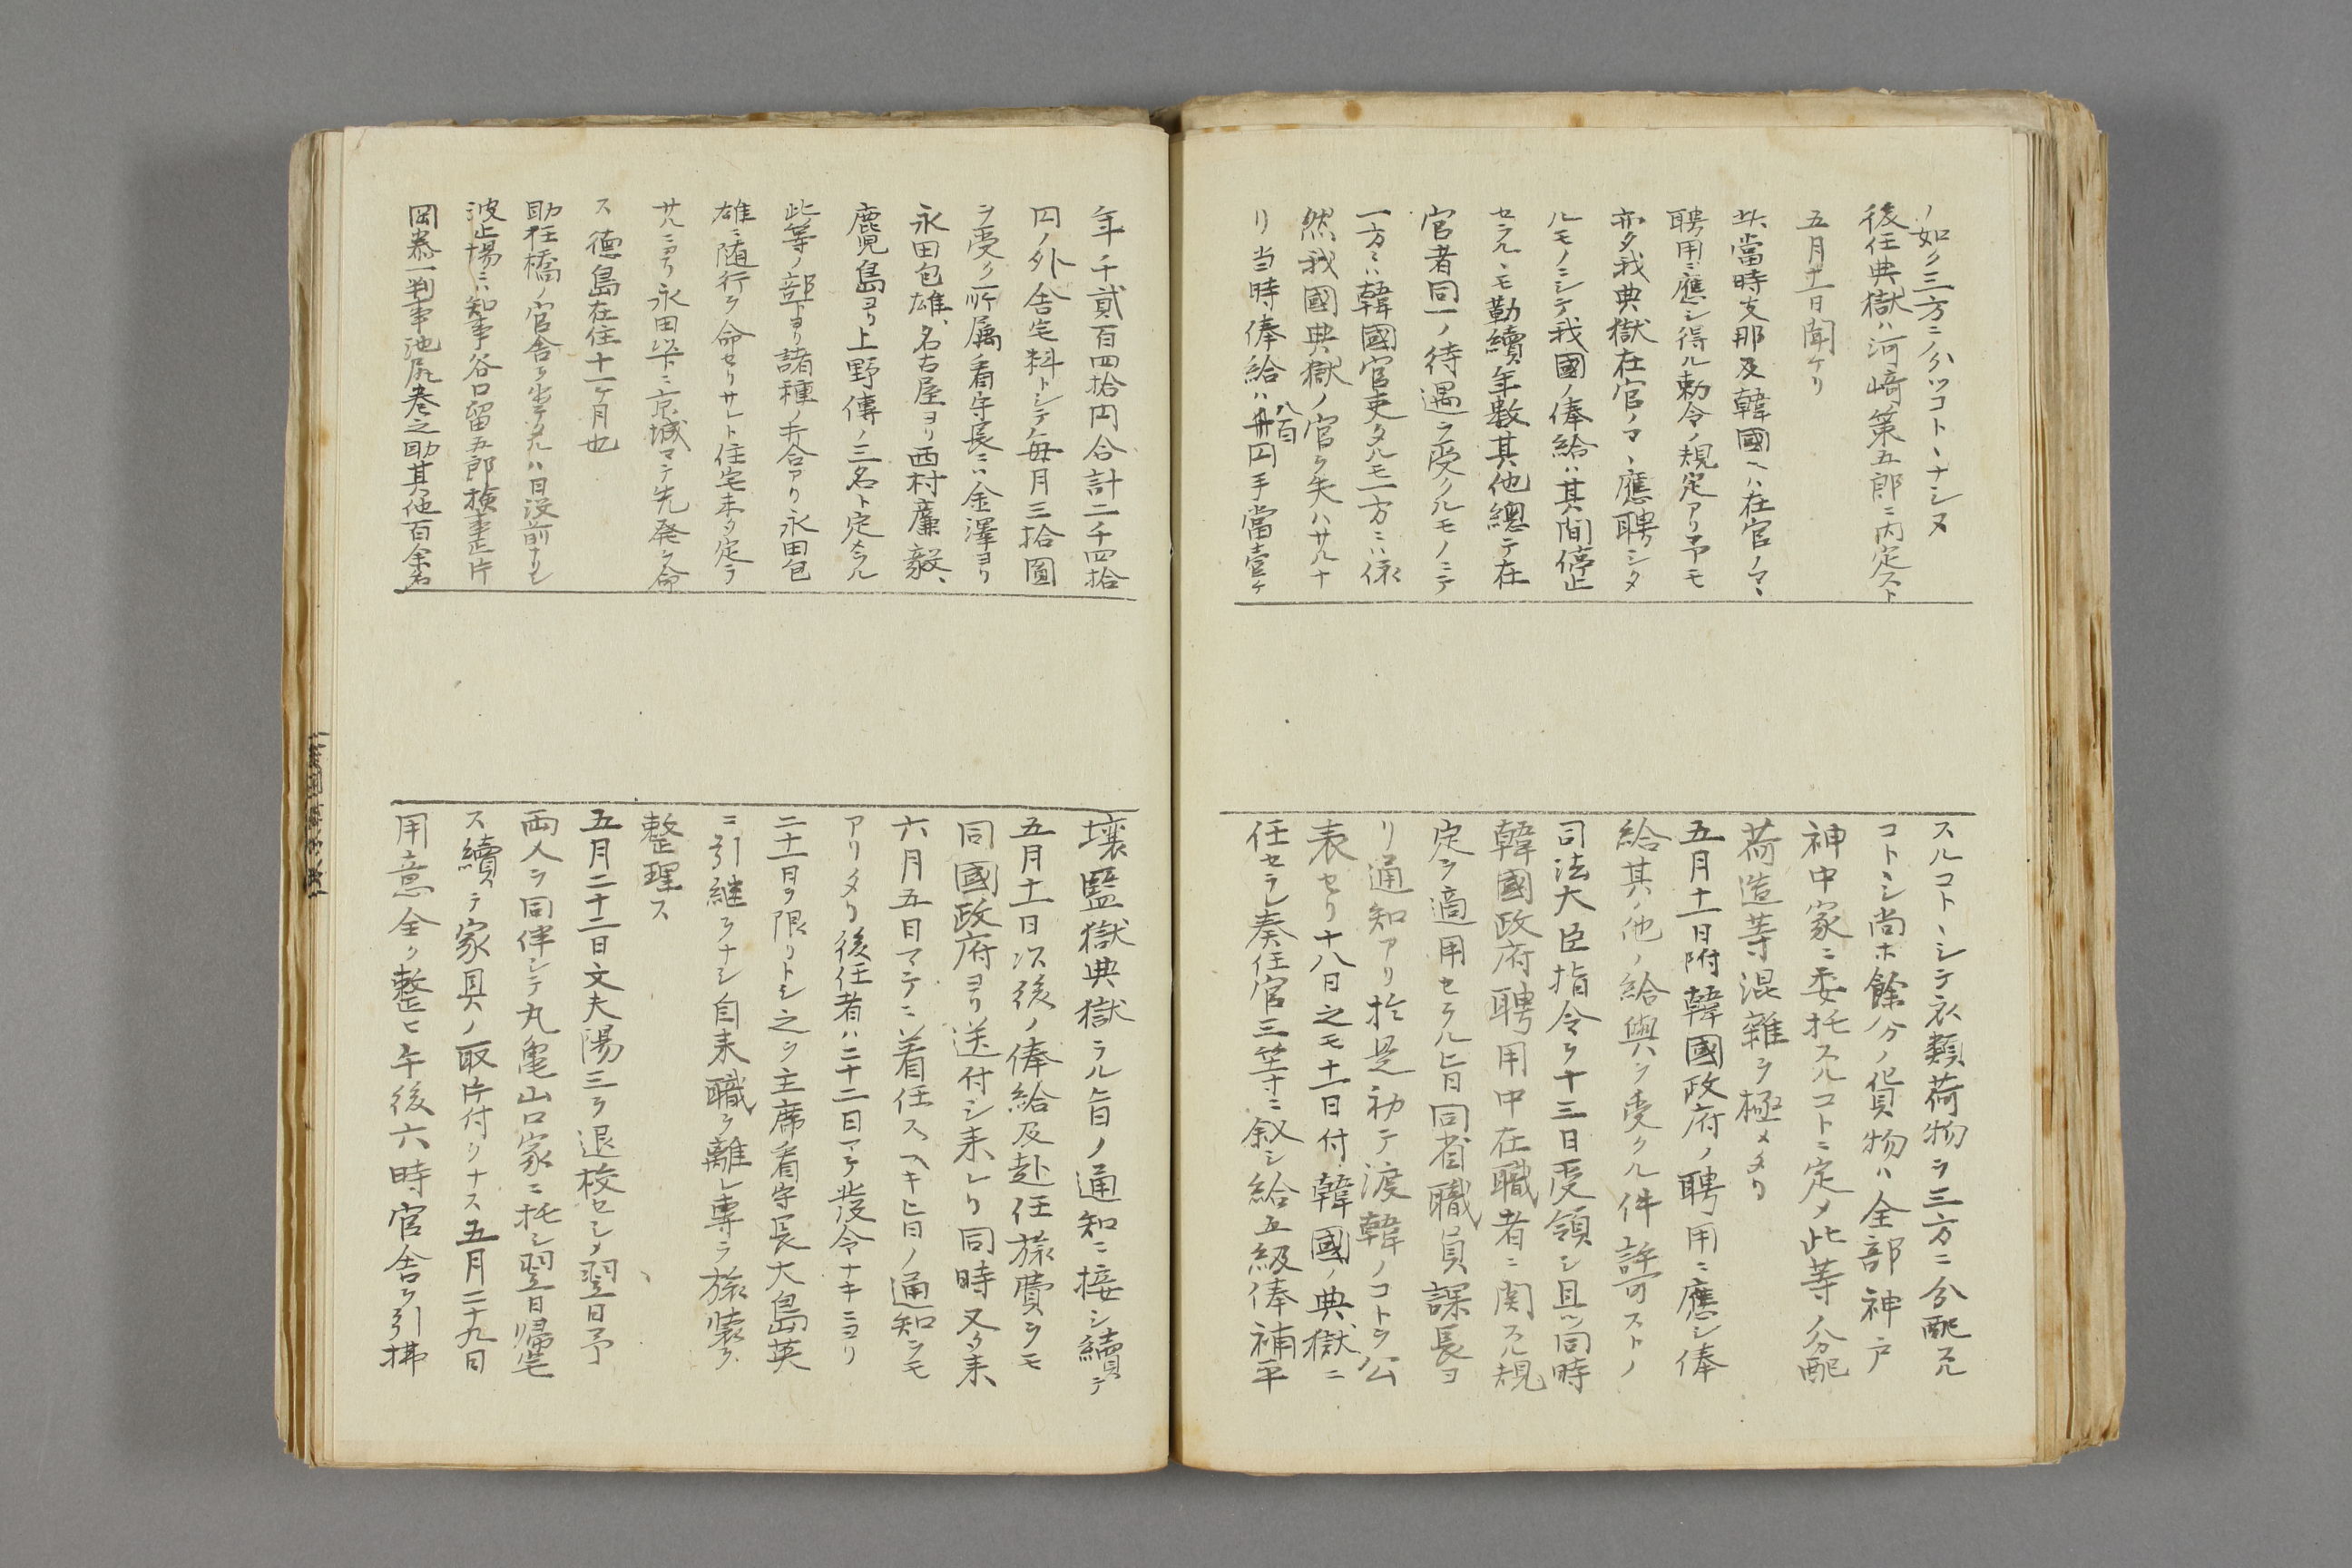 ノ如ク三方ニ分ツコトヽナシヌ
後任典獄ハ河﨑策五郎ニ内定スト
五月十一日聞ケリ
此當時支那及韓國ヘハ在官ノマヽ
聘用ニ應シ得ル勅令ノ規定アリ予モ
亦タ我典獄在官ノマヽ應聘シタ
ルモノニシテ我國ノ俸給ハ其間停止
セラルヽモ勤續年数其他總テ在
官者同一ノ待遇ヲ受クルモノニテ
一方ニハ韓國官吏タルモ一方ニハ依
然我國典獄ノ官ヲ失ハサルナ
リ当時俸給ハ八百円手當壹ケ
スルコトヽシテ衣類荷物ヲ三方ニ分配スル
コトヽシ尚ホ餘分ノ貨物ハ全部神戸
神中家ニ委托スルコトニ定メ此等ノ分配
荷造等混雜ヲ極メタリ
五月十一日附韓國政府ノ聘用ニ應シ俸
給其ノ他ノ給與ヲ受クル件許可ストノ
司法大臣指令ヲ十三日受領シ且ツ同時
韓國政府聘用中在職者ニ関スル規
定ヲ適用セラル旨同省職員課長ヨ
リ通知アリ於是初テ渡韓ノコトヲ公
表セリ十八日之モ十一日付韓國ノ典獄ニ
任セラレ奏任官三等ニ叙シ給五級俸補平
年千貳百四拾円合計二千四拾
円ノ外舎宅料トシテ毎月三拾圓
ヲ受ク所属看守長ニハ金澤ヨリ
永田包雄、名古屋ヨリ西村廉毅、
鹿児島ヨリ上野傳ノ三名ト定メラル
此等ノ部下ヨリ諸種ノ照合アリ永田包
雄ニ随行ヲ命セリサレト住宅未タ定ラ
サルニヨリ永田以下ニ京城マテ先発ヲ命
ス徳島在住十一ケ月也
助任橋ノ官舎ヲ出テタルハ日没前ナリシ
波止場ニハ知事谷口留五郎検事正片
岡恭一判事池尻巻之助其他百余名
壌監獄典獄ラル旨ノ通知ニ接シ續テ
五月十一日以後ノ俸給及赴任旅費ヲモ
同國政府ヨリ送付シ来レリ同時又タ来
六月五日マテニ着任スヘキ旨ノ通知ヲモ
アリタリ後任者ハ二十二日マテ發令ナキニヨリ
二十一日ヲ限リトシ之ヲ主席看守長大島英
ニ引継ヲナシ自来職ヲ離レ專ラ旅装ヲ
整理ス
五月二十二日文夫陽三ヲ退校セシメ翌日予
両人ヲ同伴シテ丸亀山口家ニ托シ翌日帰宅
ス續テ家具ノ取片付ヲナス五月二十九日
用意全ク整ヒ午後六時官舎ヲ引拂